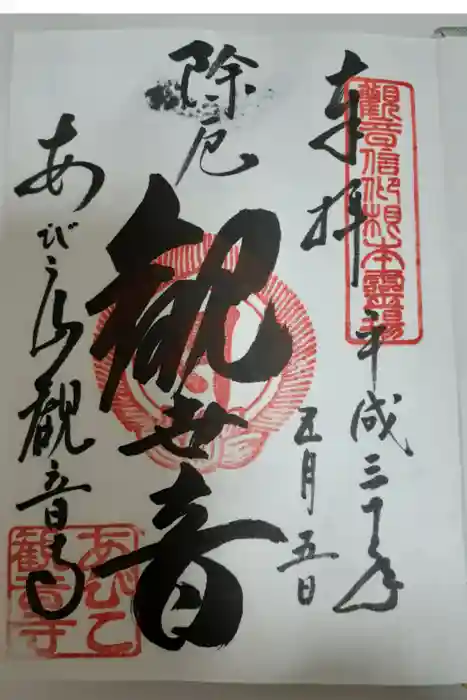 奉拝
觀音信仰根本靈場
平成三十年
五月五日
除厄
観世音
あびこ山観音寺
あびこ
観音寺